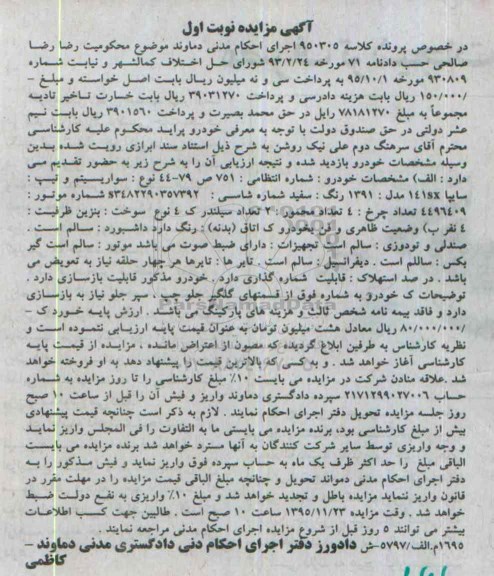 آگهی مزایده نوبت اول
در خصوص پرونده کلاسه ۹۵۰۳۰۵ اجرای احکام مدنی دماوند موضوع محکومیت رضا رضا
صالحی حسب دادنامه ۷۱ مورخه ۹۳/۲/۲۴ شورای حل اختلاف کمالشهر و نیابت شماره
۹۳۰۸۰۹ مورخه ۹۵/۱۰/۱ به پرداخت سی و نه میلیون ریال بابت اصل خواسته و مبلغ -
/۱۵۰/۰۰۰ ریال بابت هزینه دادرسی و پرداخت ۳۹۰۳۱۲۷۰ ریال بابت خسارت تاخیر تادیه
مجموعاً به مبلغ ۷۸۱۸۱۲۷۰ رایل در حق محمد بصیرت و پرداخت ۳۹۰۱۵۶۰ ریال بابت نیم
عشر دولتی در حق صندوق دولت با توجه به معرفی خودرو پراید محکوم علیه کارشناسی
محترم آقای سرهنگ دوم علی نیک روشن به شرح ذیل استناد سند ابرازی رویت شده بدین
وسیله مشخصات خودرو بازدید شده و نتیجه ارزیابی آن را به شرح زیر به حضور تقدیم می
دارد : الف) مشخصات خودرو : شماره انتظامی : ۷۵۱ ص ۷۹-۴۴ نوع : سواریسیتم و تیپ :
سایپا ۱۴۱sx مدل : ۱۳۹۱ رنگ : سفید شماره شاسی : s۳۴۸۲۲۹۰۳۵۷۳۹۲ شماره موتور :
۴۴۹۶۴۰۹ تعداد چرخ : ۴ تعداد محمور: ۲ تعداد سیلندر ک ۴ نوع سوخت : بنزین ظرفیت :
۴ نفر ب) وضعیت ظاهری و فن یخودرو ک اتاق (بدنه) : رنگ دارد داشبورد : سالم است .
صندلی و تودوزی : سالم است تجهیزات : دارای ضبط صوت می باشد موتور : سالم است گیر
بکس : ساللم است . دیفرانسیل : سالم است . تایر ها : تایرها هر چهار حلقه نیاز به تعویض می
باشد . در صد استهلاک : قابلیت شماره گذاری دارد . خودرو مذکور قابلیت بازسازی دارد .
توضیحات ک خودرو به شماره فوق از قسمتهای گلگیر جلو چپ ، سپر جلو نیاز به بازسازی
دارد و فاقد بیمه نامه شخص ثالث و هزینه های پارکینگ می باشد . ارزش پایه خودر ک -
/۸۰/۰۰۰/۰۰۰ ریال معادل هشت میلیون تومان به عنوان قیمت پایه ارزیابی نتموده است و
نظریه کارشناس به طرفین ابلاغ گردیده که مصون از اعتراض مانده ، مزایده از قیمت پایه
کارشناسی آغاز خواهد شد . و به کسی که بالاترین قیمت را پیشنهاد دهد به او فروخته خواهد
شد .علاقه منادن شرکت در مزایده می بایست ۱۰٪ مبلغ کارشناسی را تا روز مزایده به شماره
حساب ۲۱۷۱۲۹۹۰۲۷۰۰۶ سپرده دادگستری دماوند واریز و فیش آن را قبل از ساعت ۱۰ صبح
روز جلسه مزایده تحویل دفتر اجرای احکام نمایند . لازم به ذکر است چنانچه قیمت پیشنهادی
بیش از مبلغ کارشناسی بود، برنده مزایده می بایستی ما به التفاوت را فی المجلس واریز نماید
و وجه واریزی توسط سایر شرکت کنندگان به آنها مسترد خواهد شد برنده مزایده می بایست
الباقی مبلغ را حد اکثر ظرف یک ماه به حساب سپرده فوق واریز نماید و فیش مذکور را به
دفتر اجرای احکام مدنی دمواند تحویل و چنانچه مبلغ الباقی قیمت مزایده را در مهلت مقرر در
قانون واریز ننماید مزایده باطل و تجدید خواهد شد و مبلغ ۱۰٪ واریزی به نفع دولت ضبط
خواهد شد . وقت مزایده ۱۳۹۵/۱۱/۲۳ ساعت ۱۰ صبح است . طالبین جهت کسب اطلاعات
بیشتر می توانند ۵ روز قبل از شروع مزایده اجرای احکام مدنی مراجعه نمایند .
۱۶۹۵م.الف/۵۷۹۷-ش دادورز دفتر اجرای احکام دنی دادگستری مدنی دماوند -
کاظمی